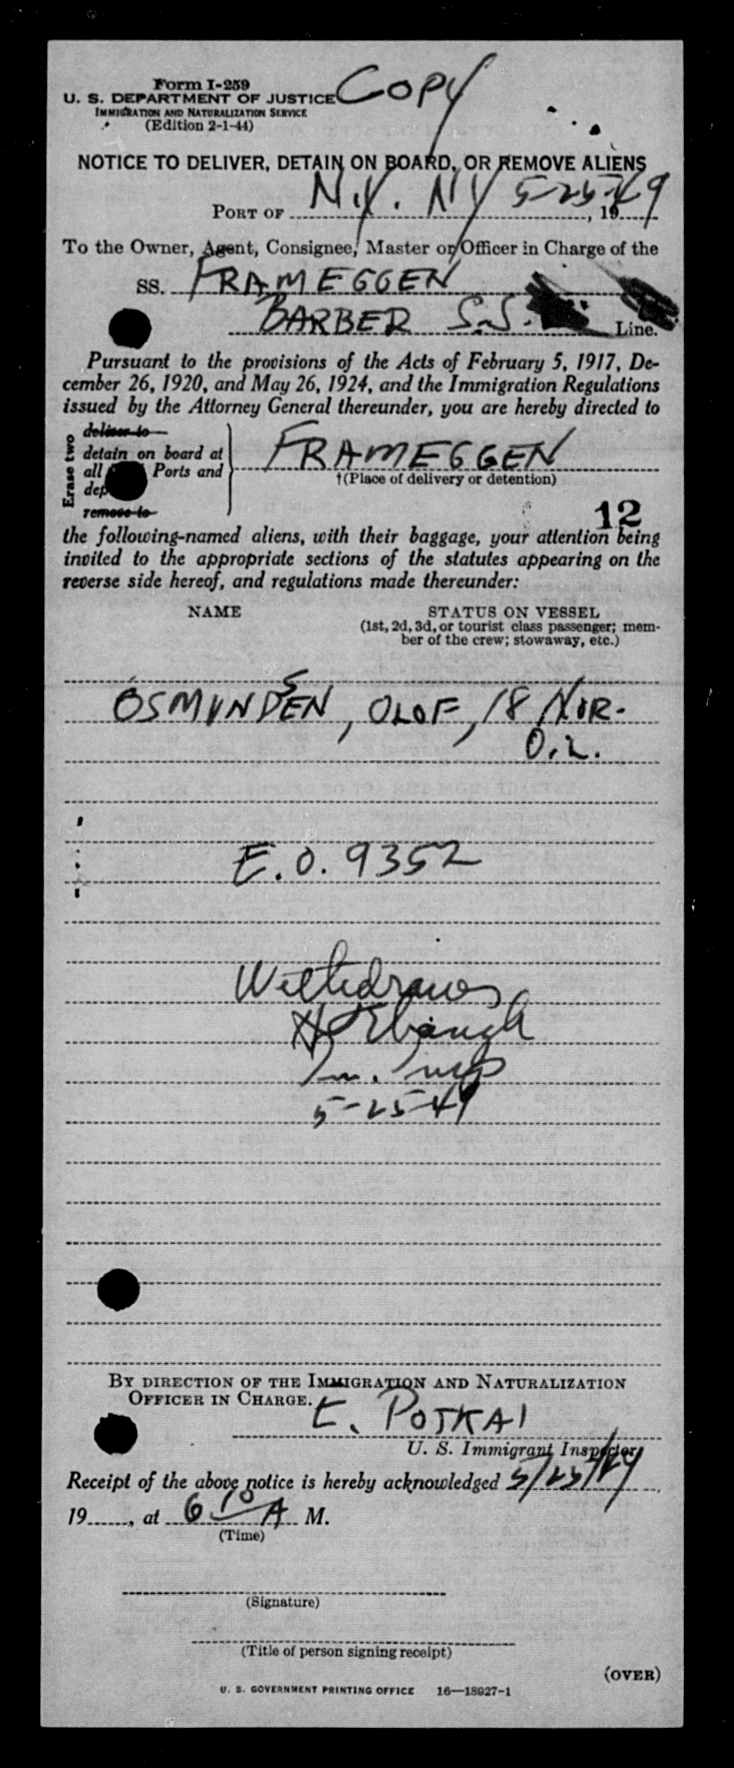 Form I-259
COPY
U. S. DEPARTMENT OF JUSTICE
IMMIGRATION AND NATURALIZATION SERVICE
(Edition 2-1-44)
NOTICE TO DELIVER, DETAIN ON BOARD, OR REMOVE ALIENS
PORT OF N.Y. NY 5-25-49, 19
To the Owner, Agent, Consignee, Master or Officer in Charge of the
SS. FRAMEGGEN
BARBER S.S. Line.
Pursuant to the provisions of the Acts of February 5, 1917, De-
cember 26, 1920, and May 26, 1924, and the Immigration Regulations
issued by the Attorney General thereunder, you are hereby directed to
Erase two
deliver to
detain on board at
all Ports and
dep
remove to
FRAMEGGEN
†(Place of delivery or detention)
12
the following-named aliens, with their baggage, your attention being
invited to the appropriate sections of the statutes appearing on the
reverse side hereof, and regulations made thereunder:
NAME STATUS ON VESSEL
(1st, 2d, 3d, or tourist class passenger; mem-
ber of the crew; stowaway, etc.)
OSMUNDSEN, OLOF, 18 NOR.
O.L.
E.O. 9352
Withdrawn
Im. Insp
5-25-49
BY DIRECTION OF THE IMMIGRATION AND NATURALIZATION
OFFICER IN CHARGE.
E. POTKAI
U. S. Immigrant Inspector
Receipt of the above notice is hereby acknowledged 5/25/49
19, at 6 10 A M.
(Time)
(Signature)
(Title of person signing receipt)
(OVER)
U. S. GOVERNMENT PRINTING OFFICE 16—18927-1